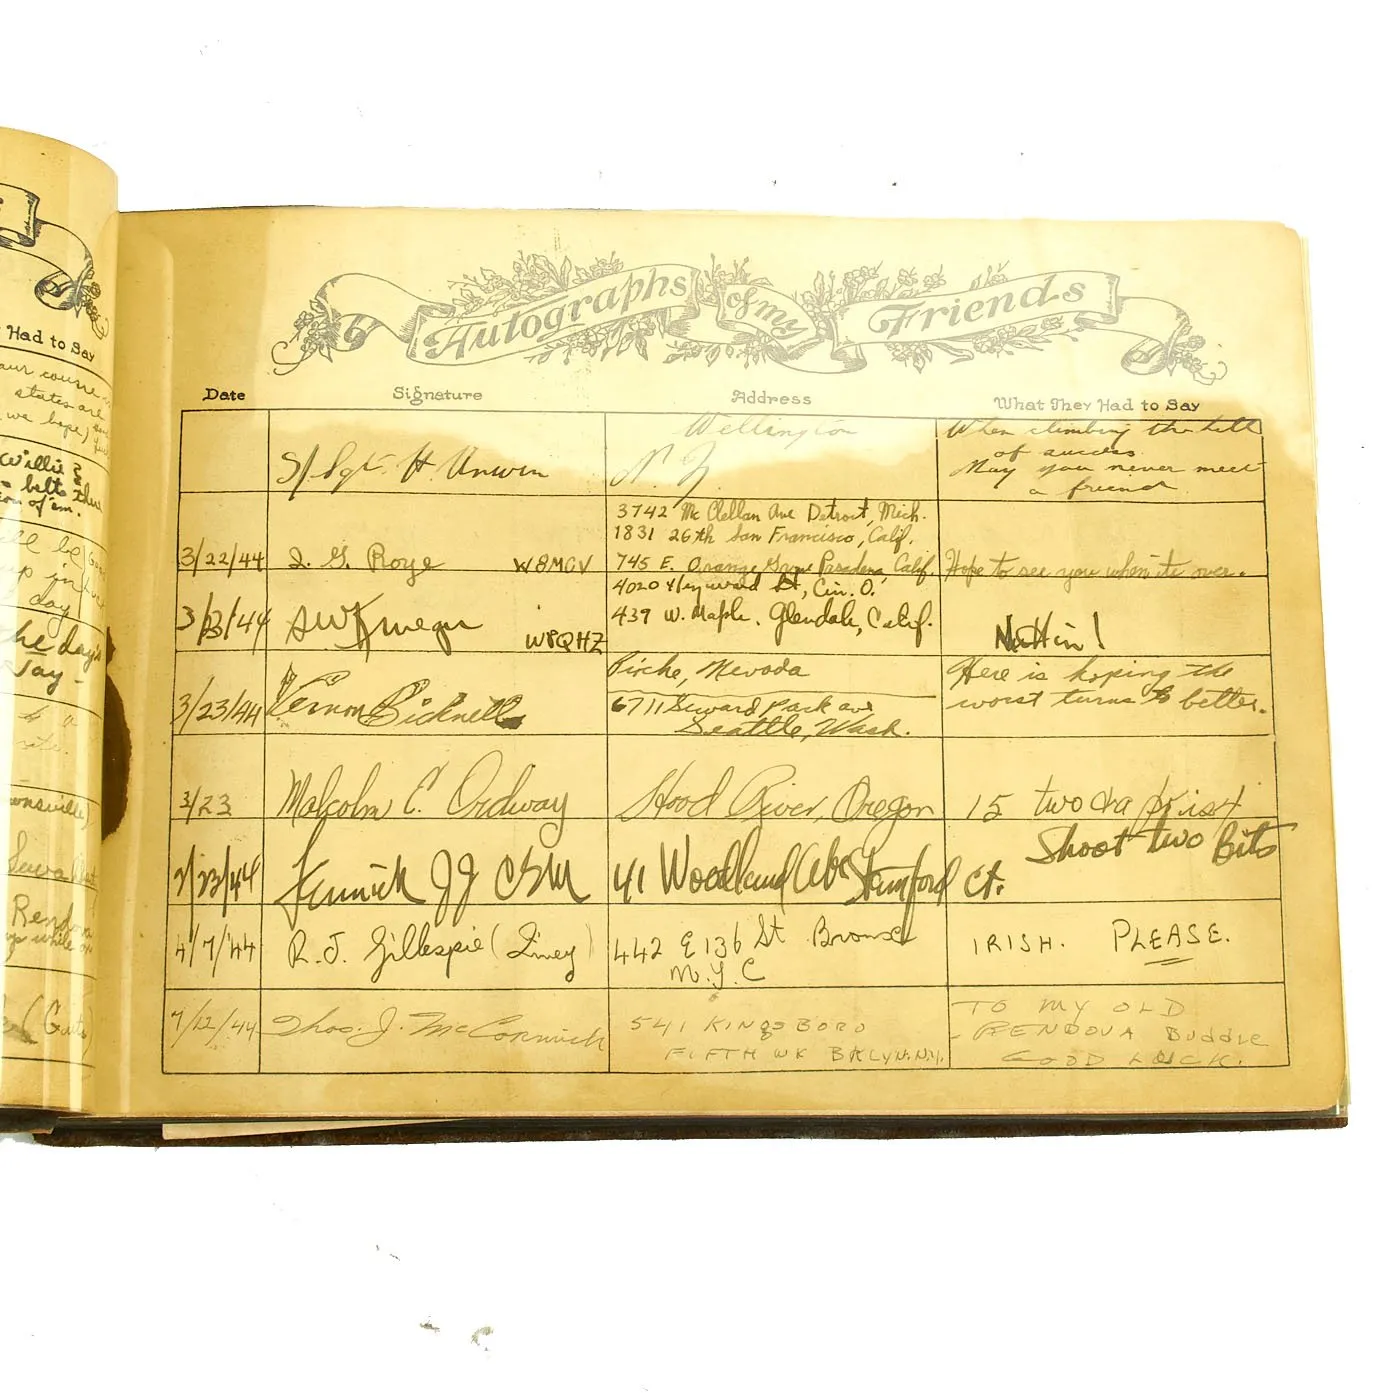 Had to Say
our course
states are
we hope)
Willie &
belts
of 'em.
day
the day's
Way -
Rendova
(Guts)
Autographs of my Friends
Date Signature Address What They Had to Say
S/Sgt. H. Unwin Wellington N.Z. When climbing the hill
of success
May you never meet
a friend.
3742 McClellan Ave Detroit, Mich.
1831 26th San Francisco, Calif.
3/22/44 I. G. Roye W8MCV 745 E. Orange Grove Pasadena, Calif. Hope to see you when its over.
4020 St, Cin. O.
3/23/44 W8QHZ 439 W. Maple. Glendale, Calif. Nuthin!
3/23/44 Vernon Bicknell Nevada
6711 Seward Park ave
Seattle, Wash.
Here is hoping the
worst turns to better.
3/23 Malcolm E. Ordway Hood River, Oregon 15 two
/23/44 JJ CSM 41 Woodland Ave Stamford Ct. Shoot two Bits
4/7/44 R. J. Gillespie 442 E 136 St Bronx
N.Y.C
IRISH. PLEASE.
7/12/44 Thos. J. McCormick 541 KINGSBORO
FIFTH WK BKLYN. N.Y.
TO MY OLD
RENDOVA BUDDIE
GOOD LUCK.